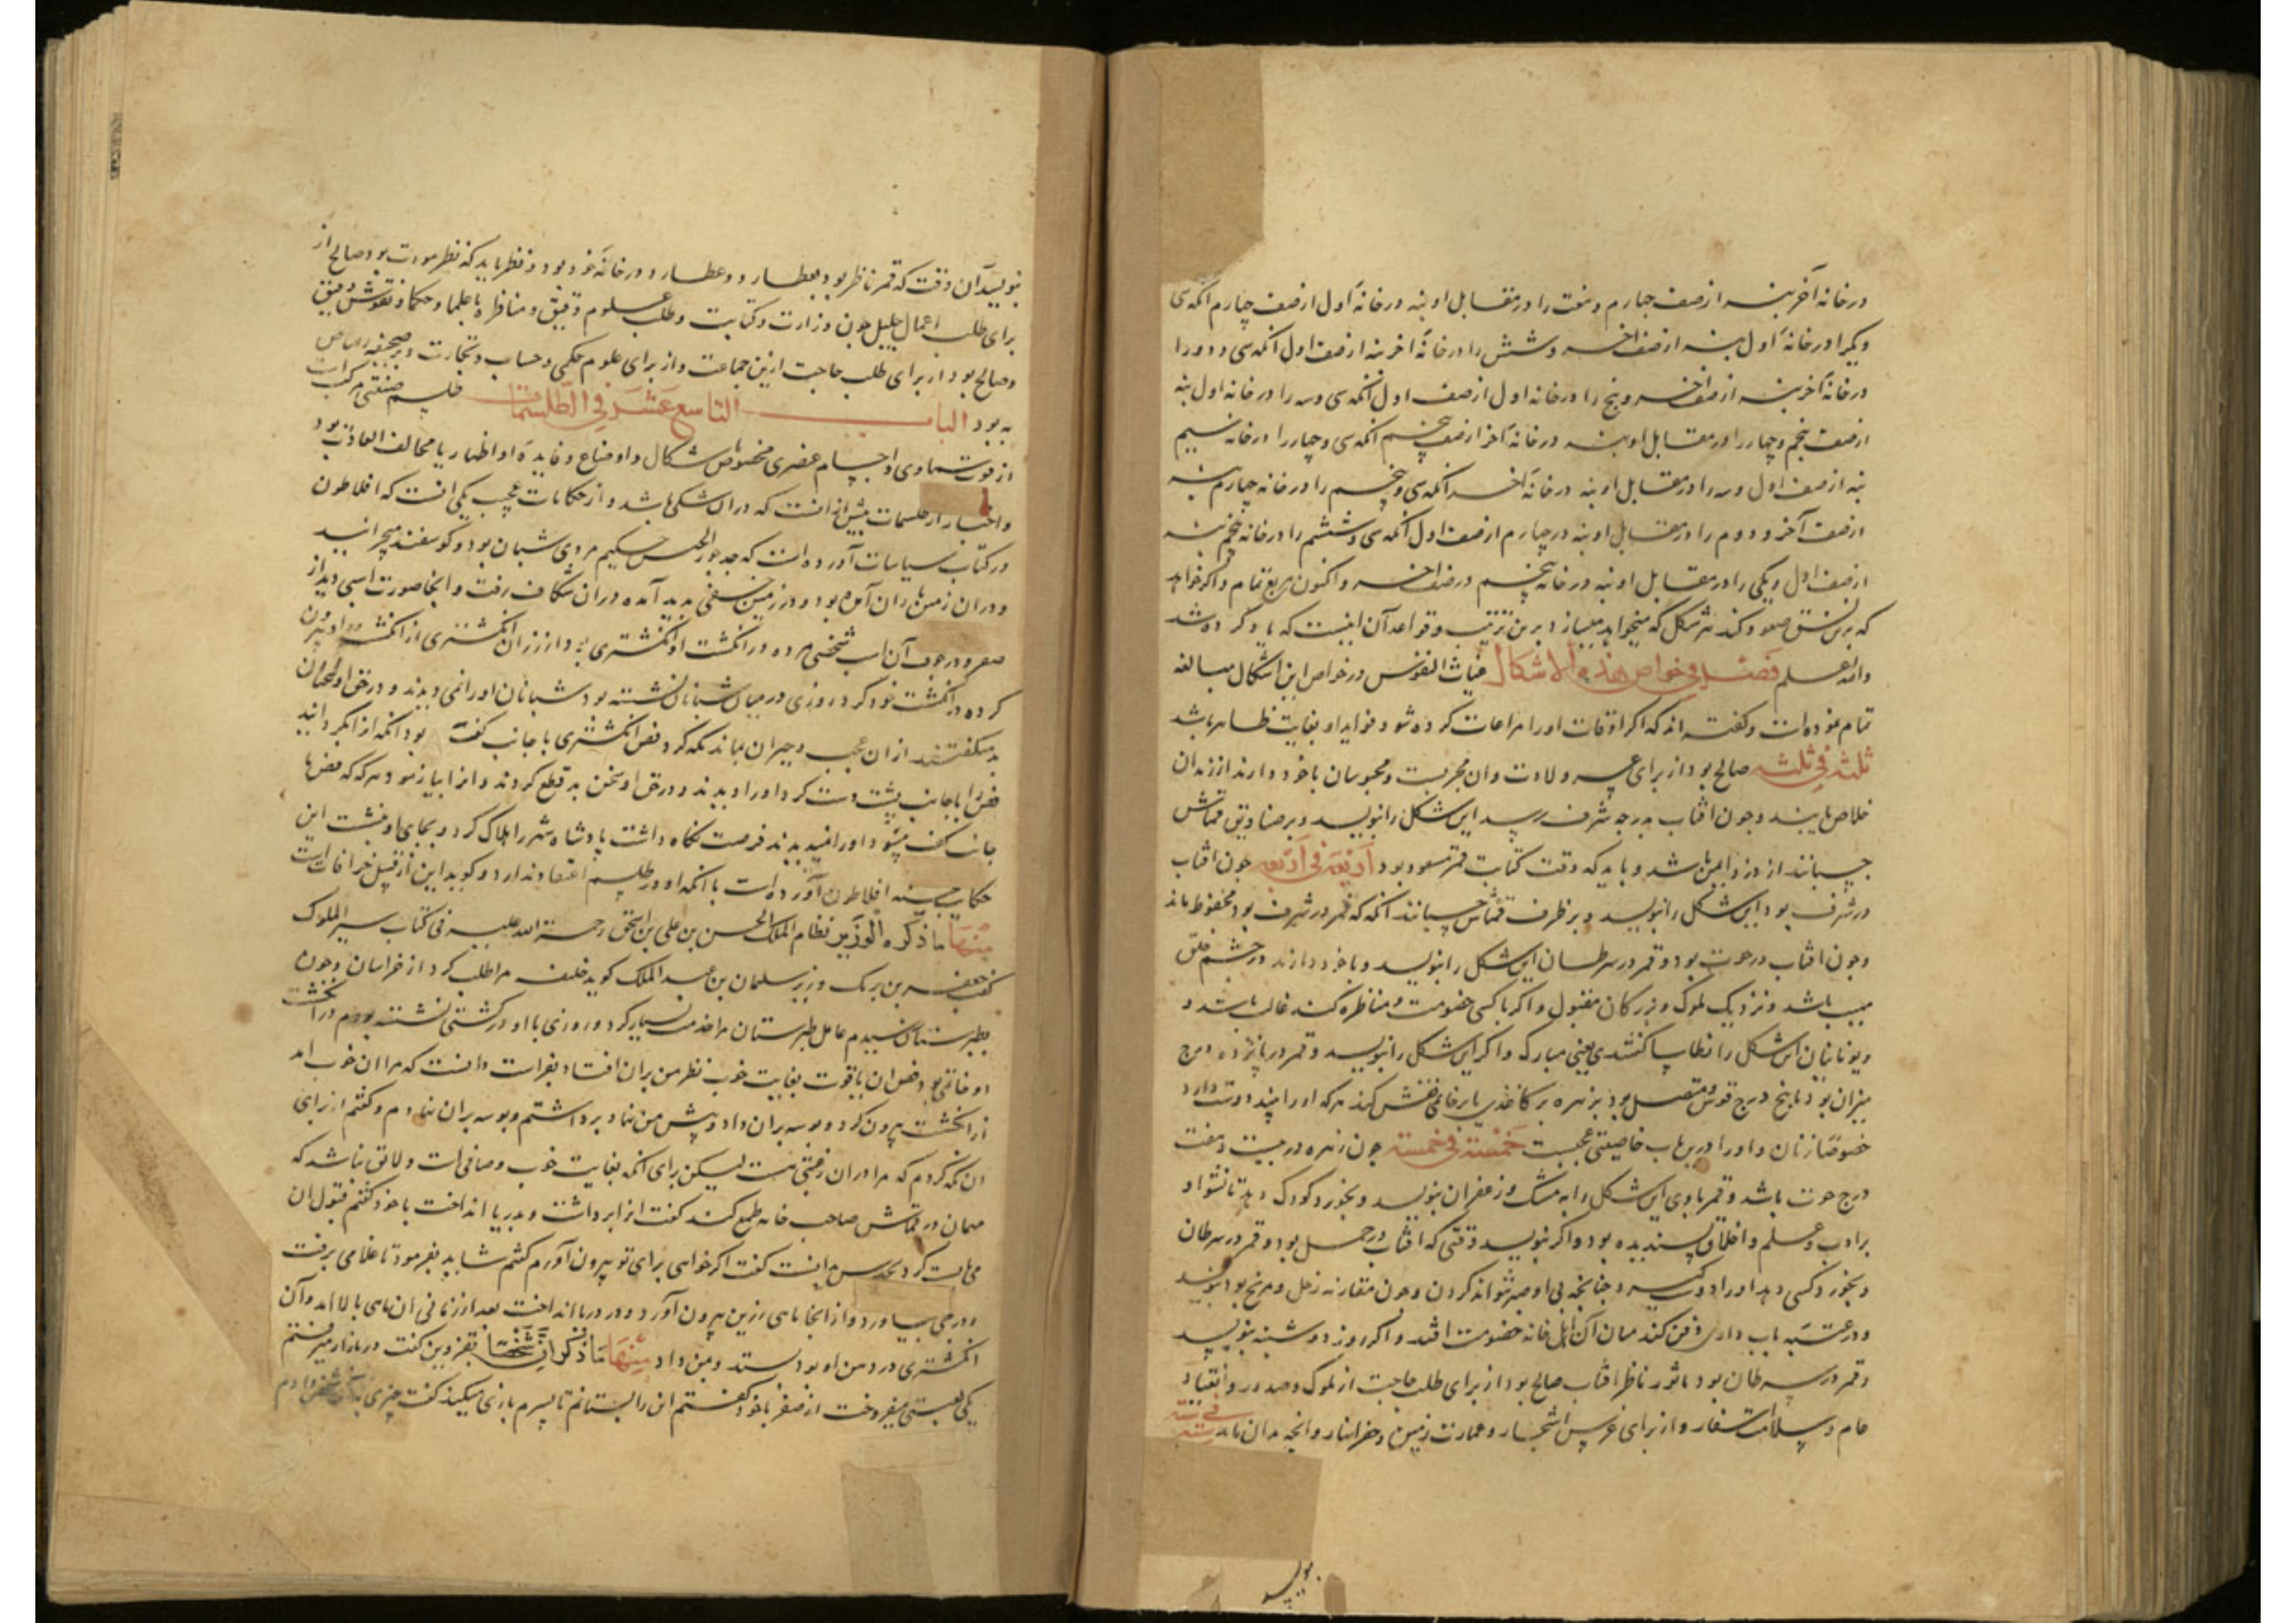 در خانه آخر بنه از صف چهارم و هفت را در مقابل او بنه در خانه اول از صف چهارم آنکه سی
و یکم را در خانه اول بنه از صف آخر و شش را در خانه آخر بنه از صف اول آنکه سی و دو را
در خانه آخر بنه از صف آخر و پنج را در خانه اول از صف اول آنکه سی و سه را در خانه اول بنه
از صف پنجم و چهار را در مقابل او بنه در خانه آخر از صف پنجم آنکه سی و چهار را در خانه سیم
بنه از صف اول و سه را در مقابل او بنه در خانه آخر آنکه سی و پنجم را در خانه چهارم بنه
از صف آخر و دوم را در مقابل او بنه در چهارم از صف اول آنکه سی و ششم را در خانه پنجم بنه
از صف اول و یکی را در مقابل او بنه در خانه پنجم در صف آخر و اکنون مربع تمام و اگر خواهد
که برین نسق صعود کند هر شکل که میخواهد میسازد برین ترتیب و قواعد آن اینست که یاد کرده شد
والله اعلم فصل فی خواص هذه الاشکال غیاث النفوس در خواص این اشکال مبالغه
تمام نموده‌است و گفته‌اند که اگر اوقات او را مراعات کرده شود فواید او بغایت ظاهر باشد
ثلثه فی ثلثه صالح بود از برای عسر ولادت و آن مجربست و محبوسان با خود دارند از زندان
خلاص یابند و چون افتاب بدرجه شرف رسید این شکل را بنویسد و بر صنادیق قماش
چسبانند از دزد ایمن باشد و باید که وقت کتابت قمر مسعود بود اربعه فی اربعه چون افتاب
در شرف بود این شکل را بنویسد و بر ظرف قماش چسبانند آنکه که قمر در شرف بود محفوظ ماند
و چون افتاب در حوت بود و قمر در سرطان این شکل را بنویسد و با خود دارند در چشم خلق
مهیب باشد و نزدیک ملوک و بزرکان مقبول و اگر با کسی خصومت و مناظره کند غالب باشد و
و یونانیان این شکل را یعنی مبارک و اگر این شکل را بنویسد و قمر در پانزده درج
میزان بود تا پنج درج قوس متصل بود بزهره بر کاغذی یا بر خاتمی نقش کند هر که او را بیند دوست دارد
خصوصا زنان و او را درین باب خاصیتی عجبست خمسة فی خمسة چون زهره در بیست و هفت
درج حوت باشد و قمر با وی این شکل را به مشک و زعفران بنویسد و بخورد کودک دهد تا نشو او
بر ادب و علم و اخلاق پسندیده بود و اگر بنویسد وقتی که افتاب در حمل بود و قمر در سرطان
و بخورد کسی دهد او را دوست گیرد چنانچه بی او صبر نتواند کردن و چون مقارنه زحل و مریخ بود بنویسد
و در عتبه باب داری دفن کند میان آن اهل خانه خصومت افتد و اگر روز دوشنبه بنویسد
و قمر در سرطان بود یا ثور ناظر افتاب صالح بود از برای طلب حاجت از ملوک و صدور و انقیاد
عام و سلامت اسفار و از برای غرس اشجار و عمارت زمین و حفر انهار و انچه بدان ماند سته فی سته
بنویسد
بنویسد آن وقت که قمر ناظر بود بعطارد و عطارد در خانه خود بود و نظر باید که نظر مودت بود صالح از
برای طلب اعمال جلیل چون وزارت و کتابت و طلب علوم دقیق و مناظره با علما و حکما و نقوش دقیق
و صالح بود از برای طلب حاجت ازین جماعت و از برای علوم حکمی و حساب و تجارت و بر صحیفه رصاص
به بود الباب التاسع عشر فی الطلسمات طلسم صنعتی مرکب است
از قوت سماوی و اجسام عنصری مخصوص باشکال و اوضاع و فایده او اظهار یا مخالف العادت بود
و اخبار از طلسمات بیش از انست که در ان شکی باشد و از حکایات عجیب یکی انست که افلاطون
در کتاب سیاسات آورده است که جد حکیم مردی شبان بود و کوسفند میچرانید
و در ان زمین باران آمده بود و در زمین خسفی پدید آمده در ان شکاف رفت و انجا صورت اسبی دید از
صفر و در جوف آن اسب شخصی مرده در انگشت او انگشتری بود از زر ان انگشتری از انگشت او بیرون
کرده در انگشت خود کرد روزی در میان شبانان نشسته بود شبانان او را نمی‌دیدند و در حق او سخنان
بد میگفتند از ان عجب و حیران بماند نکه کرد فص انگشتری با جانب کفت بود آنکه از انکر دانید
فص را با جانب پشت دست کرد او را دیدند و در حق او سخن بد قطع کردند و انرا بیازمود هر که که فص با
جانب کف میشود او را نمیدیدند فرصت نکاه داشت پادشاه شهر را هلاک کرد و بجای او نشست این
حکایت افلاطون آورده است با آنکه او در طلسم اعتقاد ندارد و کوید این از قبیل خرافات است
منها ما ذکره الوزیر نظام الملک الحسن بن علی بن اسحق رحمة الله علیه فی کتاب سیر الملوک
گفت جعفر بن برمک وزیر سلمان بن عبد الملک کوید خلیفه مرا طلب کرد از خراسان و چون
بطبرستان رسیدم عامل طبرستان مرا خدمت بسیار کرد و روزی با او در کشتی نشسته بودم در انگشت
او خاتمی بود فص ان یاقوت بغایت خوب نظر من بران افتاد بفراست دانست که مرا ان خوب امد
از انگشت بیرون کرد و بوسه بران داد و پیش من نهاد برداشتم و بوسه بران نهادم و گفتم از برای
ان نکه کردم که مرا در ان رغبتی هست لیکن برای انکه بغایت خوب و صافی است و لایق نباشد که
مهمان در قماش صاحب خانه طمع کند گفت انرا برداشت و بدریا انداخت با خود گفتم قبول ان
می‌بایست کرد گفت اگر خواهی برای تو بیرون آورم گفتم شاید بفرمود تا غلامی برفت
و درجی بیاورد و از انجا ماهی زرین بیرون آورد و در دریا انداخت بعد از زمانی ان ماهی بالا امد و آن
انگشتری در دهن او بود بستد و بمن داد منها ما ذکر ان شخصا بقزوین گفت در بازار میرفتم
یکی لعبتی میفروخت از صفر با خود گفتم این را بستانم تا پسرم بازی میکند گفت چیزی